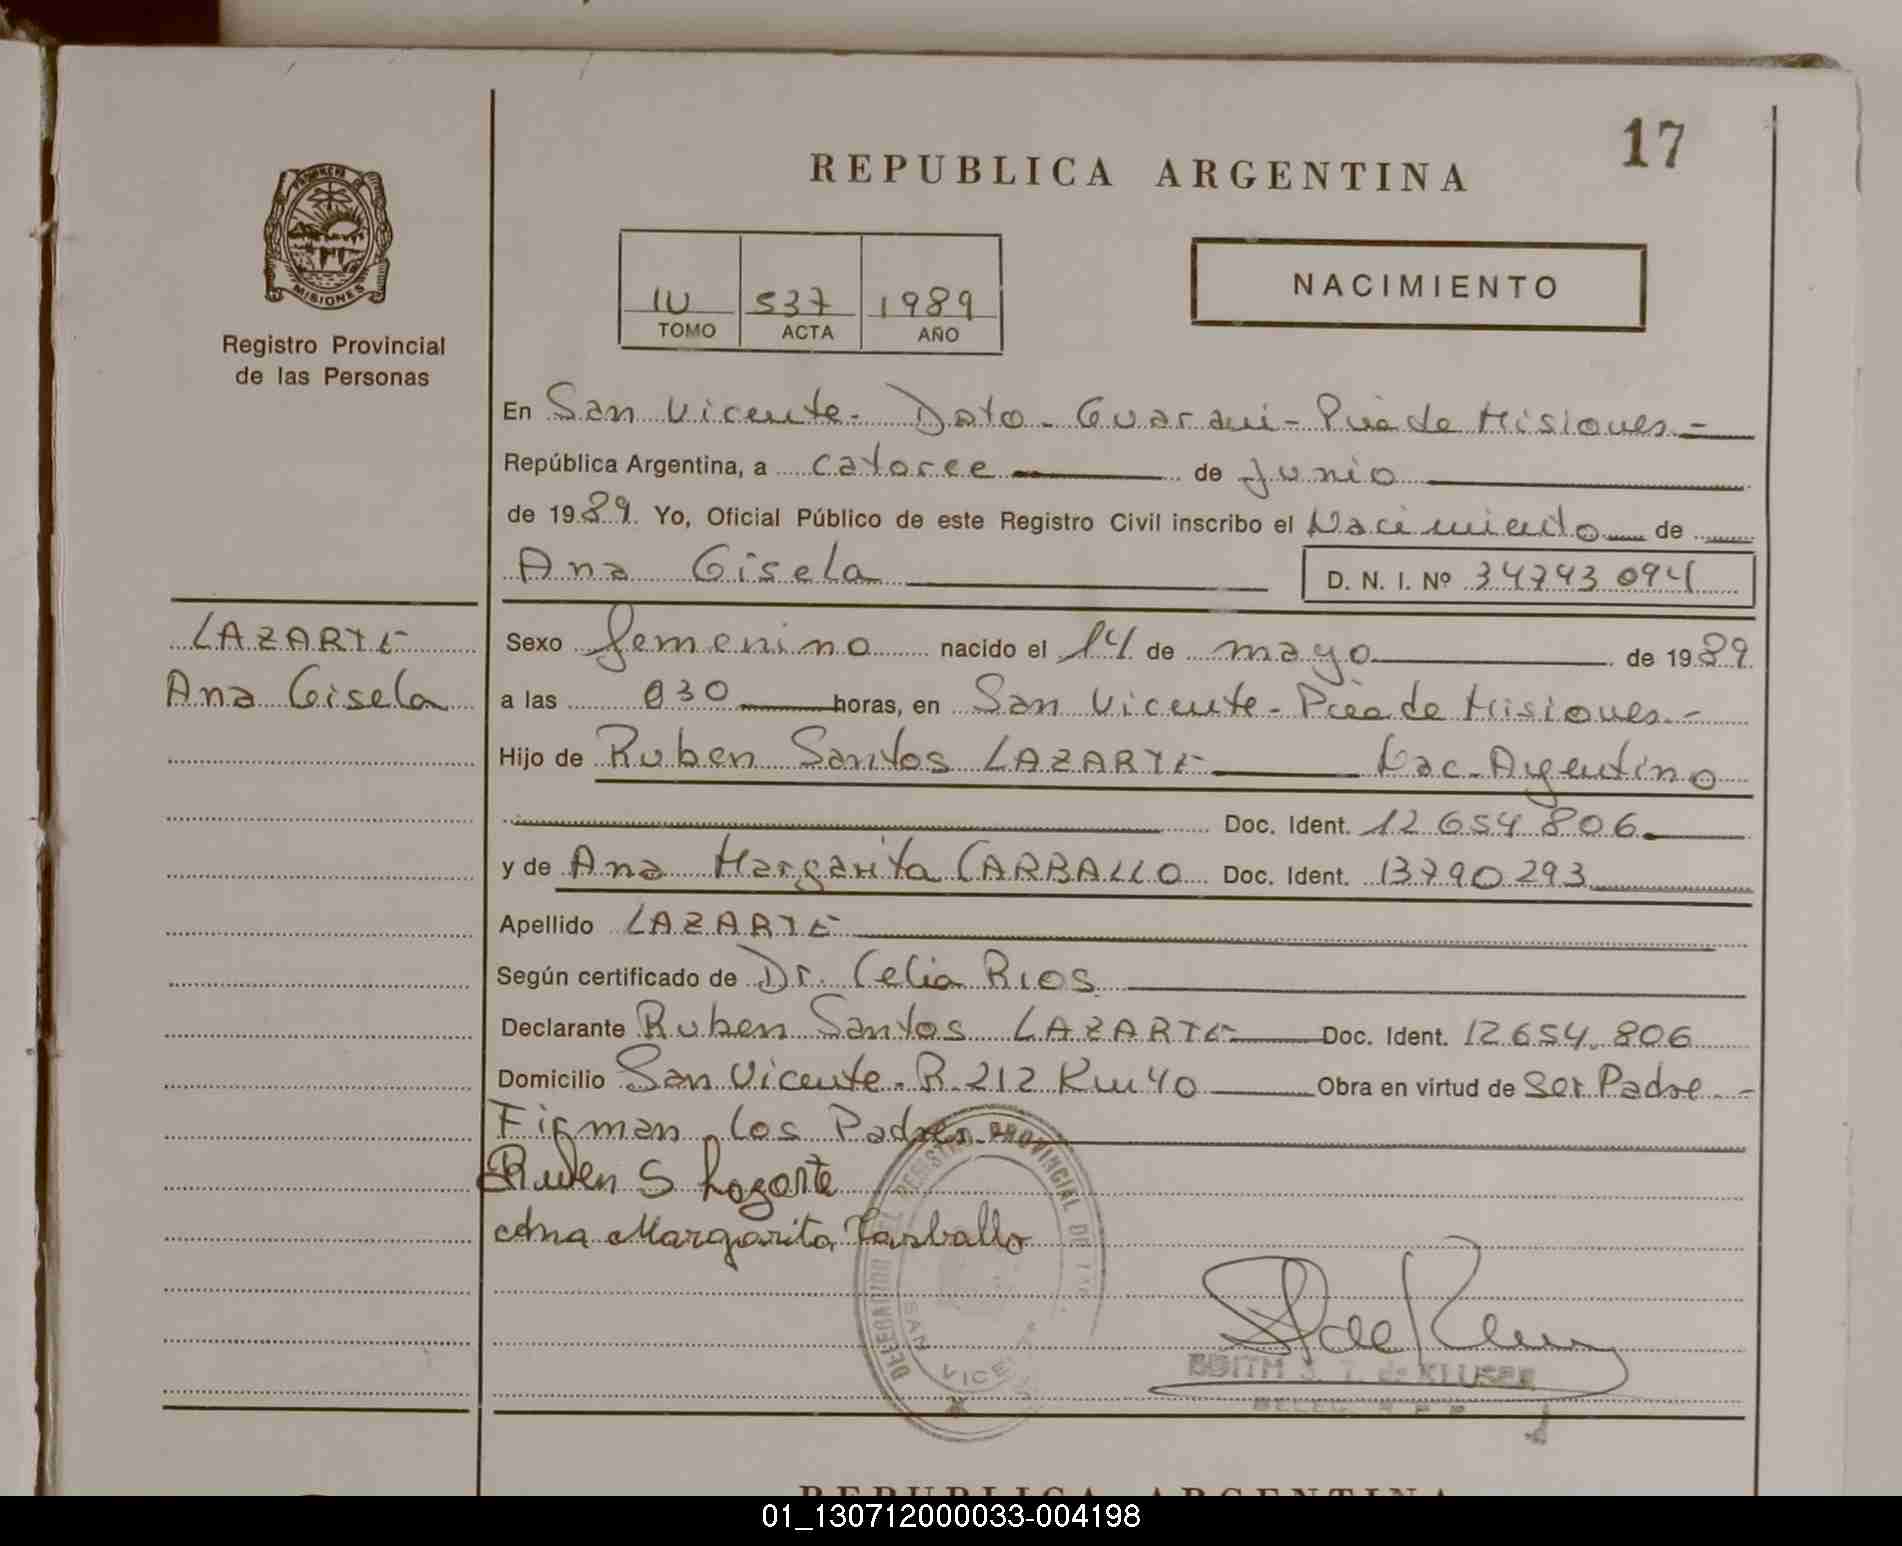 17
REPUBLICA ARGENTINA
PROVINCIA DE
MISIONES
Registro Provincial
de las Personas
IV 537 1989
TOMO ACTA AÑO
NACIMIENTO
En San Vicente - Dpto - Guarani - Pcia de Misiones -
República Argentina, a catorce de Junio
de 1989. Yo, Oficial Público de este Registro Civil inscribo el Nacimiento de
Ana Gisela D. N. I. Nº 34743094
LAZARTE
Ana Gisela
Sexo femenino nacido el 14 de mayo de 1989
a las 030 horas, en San Vicente - Pcia de Misiones -
Hijo de Ruben Santos LAZARTE Nac. Argentino
Doc. Ident. 12654806
y de Ana Margarita CARBALLO Doc. Ident. 13790293
Apellido LAZARTE
Según certificado de Dr. Celia Rios
Declarante Ruben Santos LAZARTE Doc. Ident. 12654.806
Domicilio San Vicente - R. 212 Km 40 Obra en virtud de Ser Padre -
Firman los Padres -
Ruben S Lazarte
Ana Margarita Carballo
DELEGACION DEL REGISTRO PROVINCIAL DE LAS
SAN VICENTE
EDITH S. T. de KLUSER
REPUBLICA ARGENTINA
01_130712000033-004198